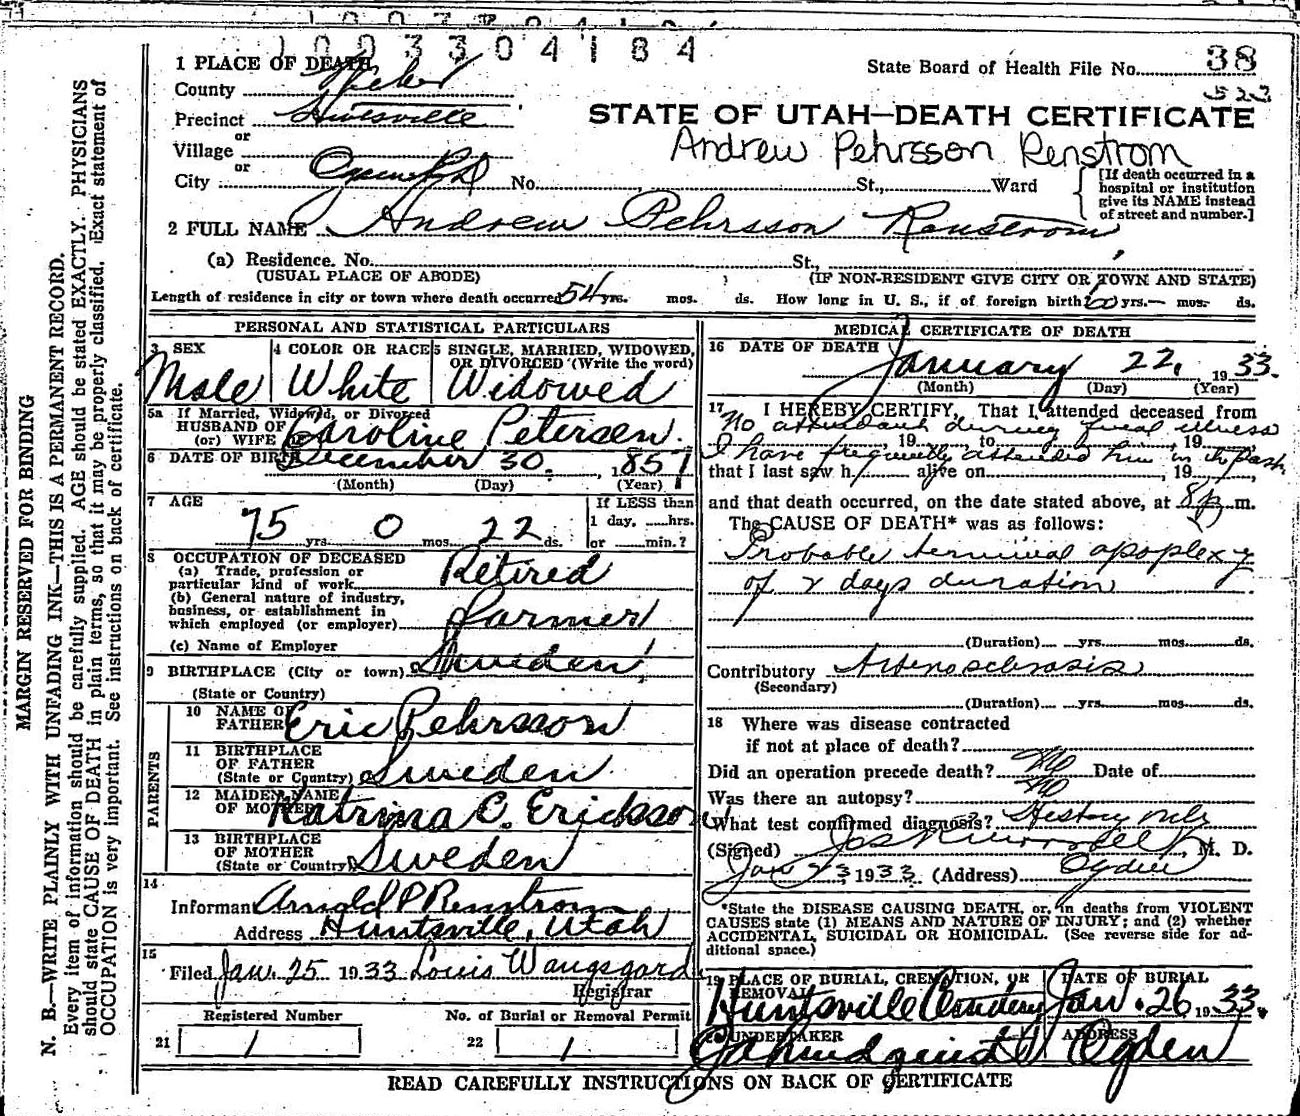 1003304184
State Board of Health File No. 38
523
1 PLACE OF DEATH
County Weber
Precinct Huntsville
or
Village
or
City No. St., Ward
[If death occurred in a hospital or institution give its NAME instead of street and number.]
STATE OF UTAH—DEATH CERTIFICATE
Andrew Pehrsson Renstrom
2 FULL NAME Andrew Pehrsson Renstrom
(a) Residence. No. St.,
(USUAL PLACE OF ABODE) (IF NON-RESIDENT GIVE CITY OR TOWN AND STATE)
Length of residence in city or town where death occurred 54 yrs. mos. ds. How long in U. S., if of foreign birth? 60 yrs.— mos. ds.
PERSONAL AND STATISTICAL PARTICULARS
3 SEX Male
4 COLOR OR RACE White
5 SINGLE, MARRIED, WIDOWED, OR DIVORCED (Write the word) Widowed
5a If Married, Widowed, or Divorced
HUSBAND OF
(or) WIFE OF Caroline Petersen.
6 DATE OF BIRTH December 30, 1857
(Month) (Day) (Year)
7 AGE 75 yrs. 0 mos. 22 ds.
If LESS than 1 day, hrs. or min.?
8 OCCUPATION OF DECEASED
(a) Trade, profession or particular kind of work Retired
(b) General nature of industry, business, or establishment in which employed (or employer) Farmer
(c) Name of Employer
9 BIRTHPLACE (City or town) Sweden
(State or Country)
PARENTS
10 NAME OF FATHER Eric Pehrsson
11 BIRTHPLACE OF FATHER (State or Country) Sweden
12 MAIDEN NAME OF MOTHER Katrina C. Erickson
13 BIRTHPLACE OF MOTHER (State or Country) Sweden
14 Informant Arnold P Renstrom
Address Huntsville, Utah
15 Filed Jan. 25 1933 Louis Wangsgard
Registrar
Registered Number
21 1
No. of Burial or Removal Permit
22 1
MEDICAL CERTIFICATE OF DEATH
16 DATE OF DEATH January 22, 1933.
(Month) (Day) (Year)
17 I HEREBY CERTIFY, That I attended deceased from
No attendant during final illness
, 19 to , 19
I have frequently attended him in the past
that I last saw h alive on , 19
and that death occurred, on the date stated above, at 8 p m.
The CAUSE OF DEATH* was as follows:
Probable terminal apoplexy
of 2 days duration
(Duration) yrs. mos. ds.
Contributory Arteriosclerosis
(Secondary)
(Duration) yrs. mos. ds.
18 Where was disease contracted
if not at place of death?
Did an operation precede death? No Date of
Was there an autopsy? No
What test confirmed diagnosis? History only
(Signed) , M. D.
Jan 23, 1933 (Address) Ogden
*State the DISEASE CAUSING DEATH, or, in deaths from VIOLENT CAUSES state (1) MEANS AND NATURE OF INJURY; and (2) whether ACCIDENTAL, SUICIDAL OR HOMICIDAL. (See reverse side for additional space.)
19 PLACE OF BURIAL, CREMATION, OR REMOVAL Huntsville Cemetery
DATE OF BURIAL Jan. 26 1933.
20 UNDERTAKER
ADDRESS Ogden
READ CAREFULLY INSTRUCTIONS ON BACK OF CERTIFICATE
MARGIN RESERVED FOR BINDING
N. B.—WRITE PLAINLY WITH UNFADING INK—THIS IS A PERMANENT RECORD.
Every item of information should be carefully supplied. AGE should be stated EXACTLY. PHYSICIANS
should state CAUSE OF DEATH in plain terms, so that it may be properly classified. Exact statement of
OCCUPATION is very important. See instructions on back of certificate.